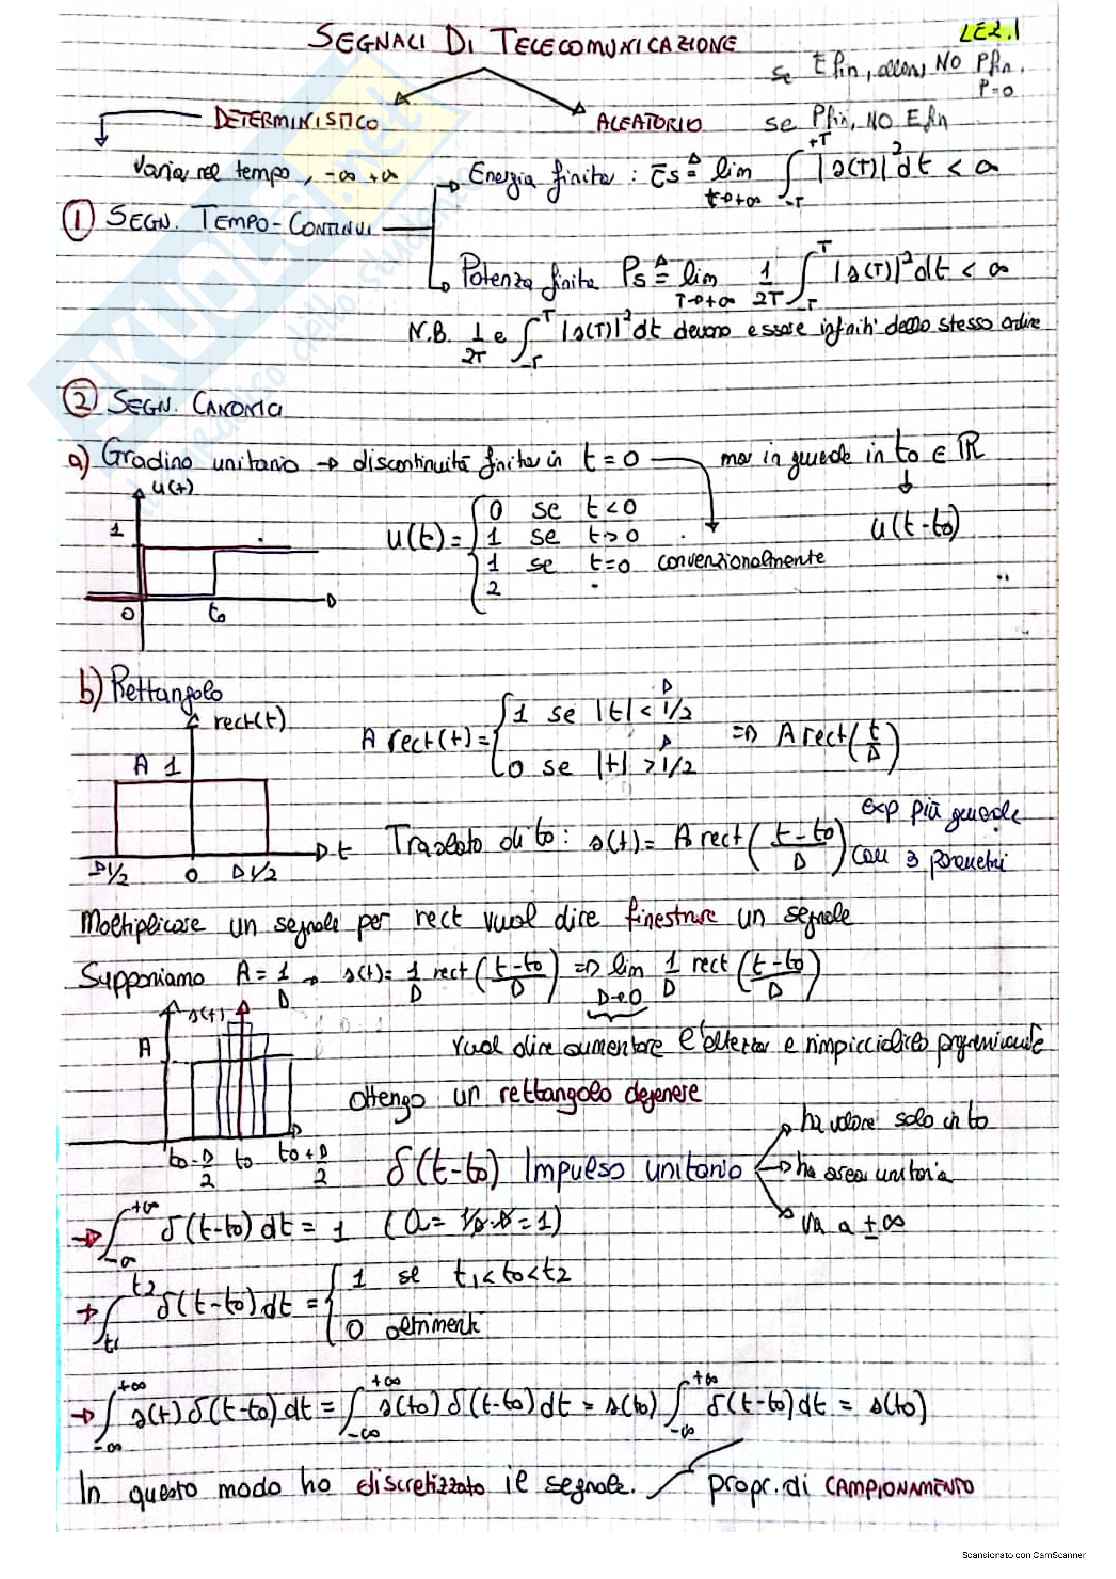 LEZ.1
SEGNALI DI TELECOMUNICAZIONE
se Efin, allora NO Pfin.
P=0
DETERMINISTICO
ALEATORIO
se Pfin, NO Efin
Varia nel tempo, -∞ +∞
Energia finita: Es ≜ lim t→+∞ ∫_{-T}^{+T} |s(T)|² dt < ∞
① SEGN. TEMPO-CONTINUI
Potenza finita Ps ≜ lim T→+∞ 1/2T ∫_{-T}^{T} |s(T)|² dt < ∞
N.B. 1/2T e ∫_{-T}^{T} |s(T)|² dt devono essere infiniti dello stesso ordine
② SEGN. CANONICI
a) Gradino unitario → discontinuità finita in t=0
ma in generale in to ∈ ℝ
u(t-to)
u(t)
1
0
to
u(t)= { 0 se t<0
1 se t>0
1/2 se t=0 convenzionalmente
b) Rettangolo
rect(t)
A 1
D 1/2
0
D 1/2
t
A rect(t)= { 1 se |t| < D 1/2
0 se |t| > D 1/2
⇒ A rect(t/D)
Traslato di to: s(t)= A rect((t-to)/D)
exp più generale
con 3 parametri
Moltiplicare un segnale per rect vuol dire finestrare un segnale
Supponiamo A=1/D → s(t)= 1/D rect((t-to)/D) ⇒ lim D→0 1/D rect((t-to)/D)
s(t)
A
to-D/2
to
to+D/2
vuol dire aumentare l'altezza e
Ottengo un rettangolo degenere
δ(t-to) Impulso unitario
ha valore solo in to
ha area unitaria
va a ±∞
→ ∫_{-∞}^{+∞} δ(t-to) dt = 1 (A= 1/D·D=1)
→ ∫_{t1}^{t2} δ(t-to) dt = { 1 se t1<to<t2
0 altrimenti
→ ∫_{-∞}^{+∞} s(t) δ(t-to) dt = ∫_{-∞}^{+∞} s(to) δ(t-to) dt = s(to) ∫_{-∞}^{+∞} δ(t-to) dt = s(to)
In questo modo ho discretizzato il segnale.
propr. di CAMPIONAMENTO
Scansionato con CamScanner